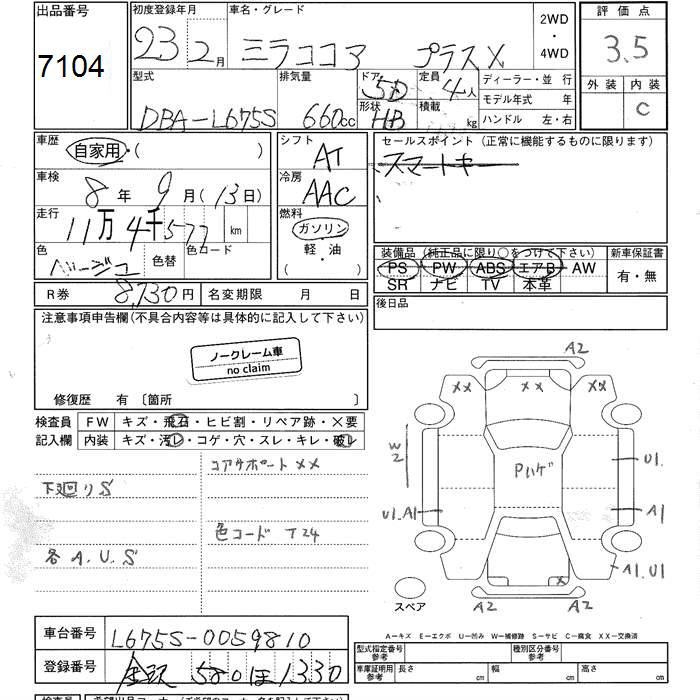 出品番号
7104
初度登録年月
23年 2月
車名・グレード
ミラココア プラスX
2WD
・
4WD
評価点
3.5
外装 内装
C
型式
DBA-L675S
排気量
660cc
ドア
5D
形状
HB
定員
4人
積載
kg
ディーラー・並 行
モデル年式 年
ハンドル 左・右
車歴
自家用・( )
シフト
AT
セールスポイント(正常に機能するものに限ります)
スマートキー
車検
8年 9月(13日)
冷房
AAC
走行
11万4千577 km
燃料
ガソリン
軽・油
( )
色
ベージュ
色替
色コード
装備品(純正品に限り○をつけて下さい)
PS PW ABS エアB AW
SR ナビ TV 本革
新車保証書
有・無
R券 8,730円
名変期限 月 日
後日品
注意事項申告欄(不具合内容等は具体的に記入して下さい)
ノークレーム車
no claim
修復歴 有 〔箇所 〕
検査員
記入欄
FW キズ・飛石・ヒビ割・リペア跡・×要
内装 キズ・汚レ・コゲ・穴・スレ・キレ・破レ
コアサポート××
下廻りS
色コード T24
各A.U.S
A2
×× ×× ××
W2
Pハゲ
U1
U1.A1
A1
A1.U1
×
A2 A2
スペア
A-キズ E-エクボ U-凹み W-補修跡 S-サビ C-腐食 XX-交換済
車台番号
L675S-0059810
登録番号
580 ほ 1330
型式指定番号
参考
種別区分番号
参考
車庫証明用
参考
長さ cm
幅 cm
高さ cm